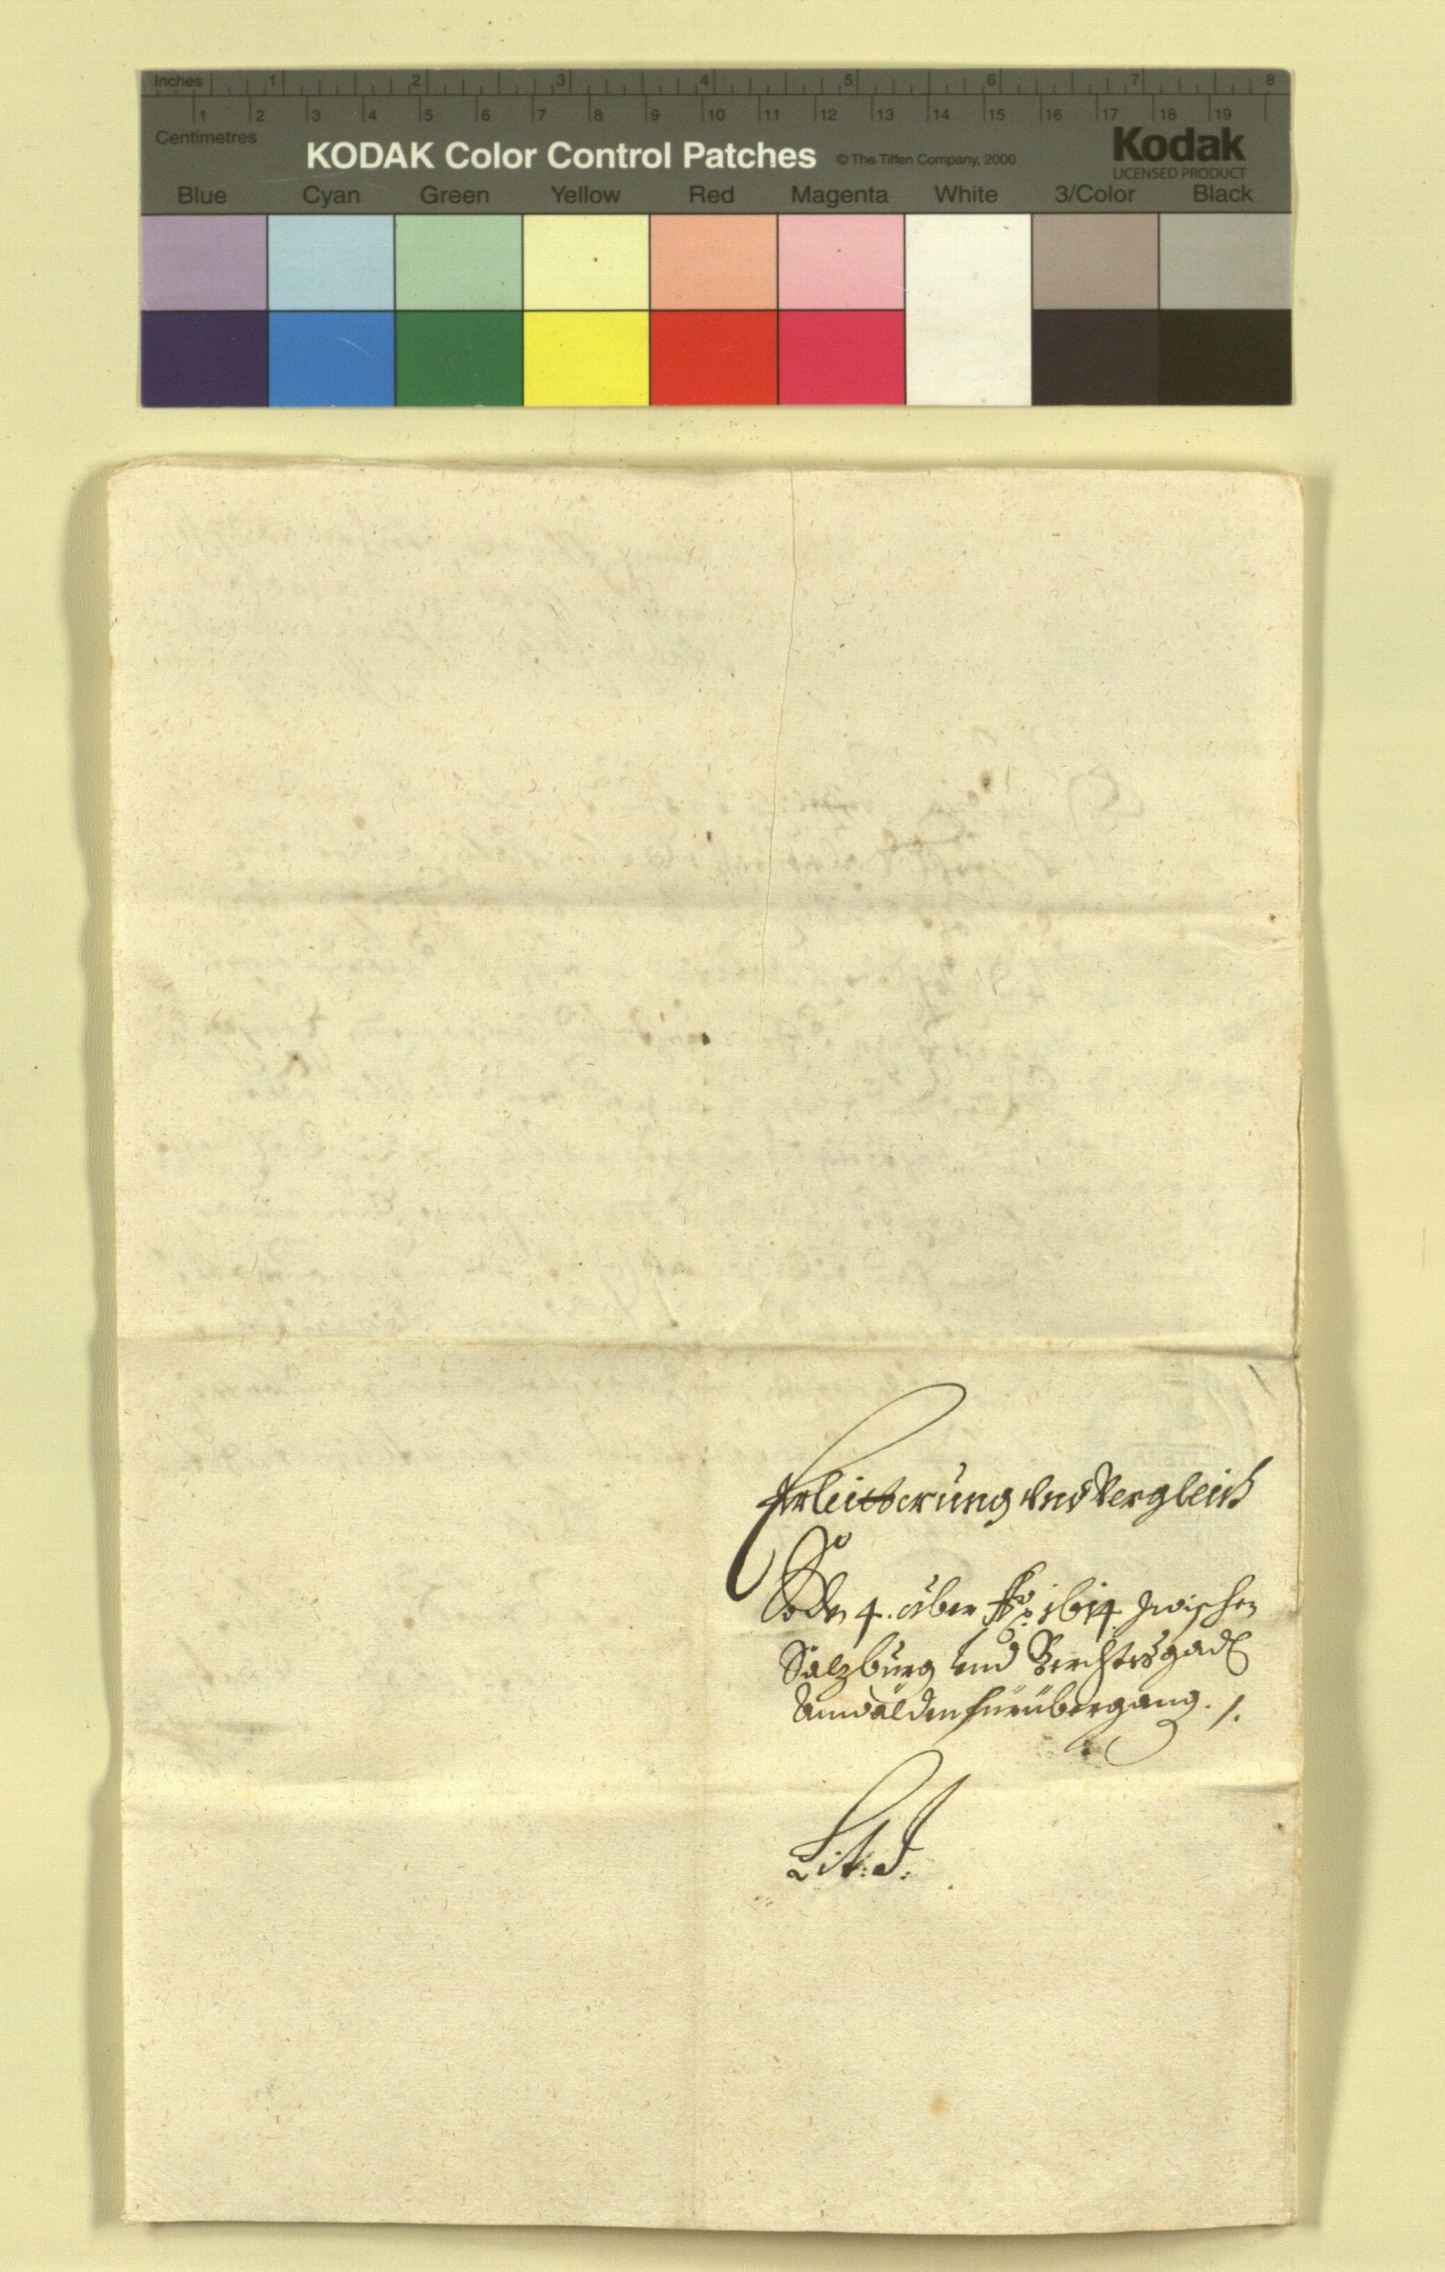 Inches 1 2 3 4 5 6 7 8
1 2 3 4 5 6 7 8 9 10 11 12 13 14 15 16 17 18 19
Centimetres
KODAK Color Control Patches © The Tiffen Company, 2000 Kodak
LICENSED PRODUCT
Blue Cyan Green Yellow Red Magenta White 3/Color Black
Erleitterung und Vergleich
So den 4. 8ber Ao. 1614 zwischen
Salzburg und Berchtesgad
Anwälden fürübergang. /.
Lit: J.